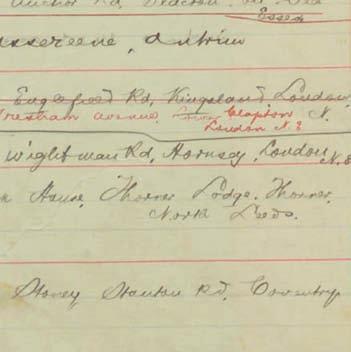 Anchor Rd,
Essex
Antrim
Englefield Rd, Kingsland London, N.
Avenue, Clapton
London N.E
Wightman Rd, Hornsey, London N.8
House, Thorner Lodge, Thorner,
North Leeds.
Stoney Stanton Rd, Coventry